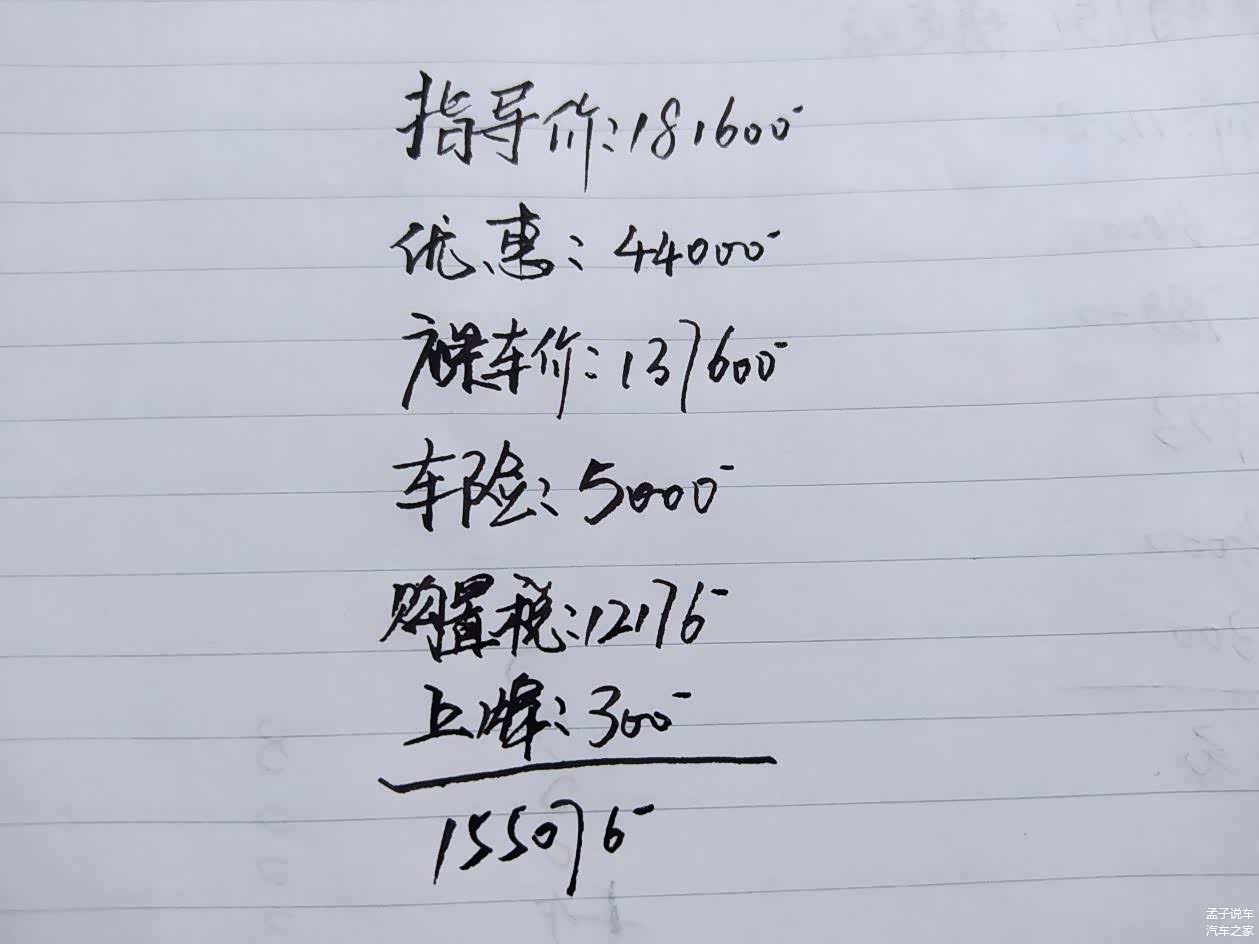 指导价:181600-
优惠:44000-
裸车价:137600-
车险:5000-
购置税:12176-
上牌:300-
155076-
孟子说车
汽车之家